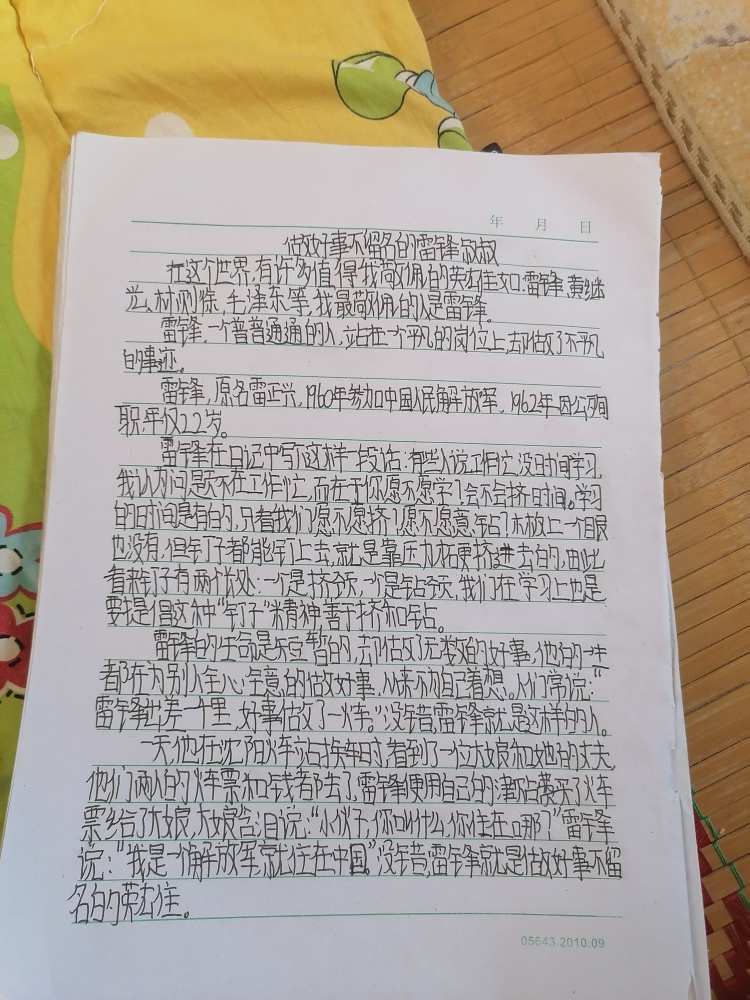 年 月 日
做好事不留名的雷锋叔叔
在这个世界,有许多值得我敬佩的英雄如:雷锋,黄继
光,林则徐,毛泽东等,我最敬佩的人是雷锋。
雷锋,一个普普通通的人,站在一个平凡的岗位上,却做了不平凡
的事迹。
雷锋,原名雷正兴,1960年参加中国人民解放军,1962年因公殉
职,年仅22岁。
雷锋在日记中写了这样一段话:有些人说工作忙,没时间学习,
我认为问题不在工作忙,而在于你愿不愿学习会不会挤时间。学习
的时间是有的,只看我们愿不愿挤,愿不愿意钻,木板上一个眼
也没有,但钉子都能钉上去,就是靠压力硬挤进去的,由此
看来钉子有两个长处:一个是挤劲,一个是钻劲,我们在学习上也是
要提倡这种“钉子”精神,善于挤和钻。
雷锋的生命是短暂的,却做了无数的好事,他的一生
都在为别人全心全意的做好事,从来不为自己着想。人们常说:“
雷锋出差一千里,好事做了一火车。”没错,雷锋就是这样的人。
一天,他在沈阳火车站换车时,看到了一位大娘和她的丈夫,
他们两人的火车票和钱都丢了,雷锋便用自己的津贴费买了火车
票给了大娘,大娘含泪说:“小伙子,你叫什么,你住在哪?”雷锋
说:“我是一个解放军,就住在中国。”没错,雷锋就是做好事不留
名的英雄。
05643.2010.09